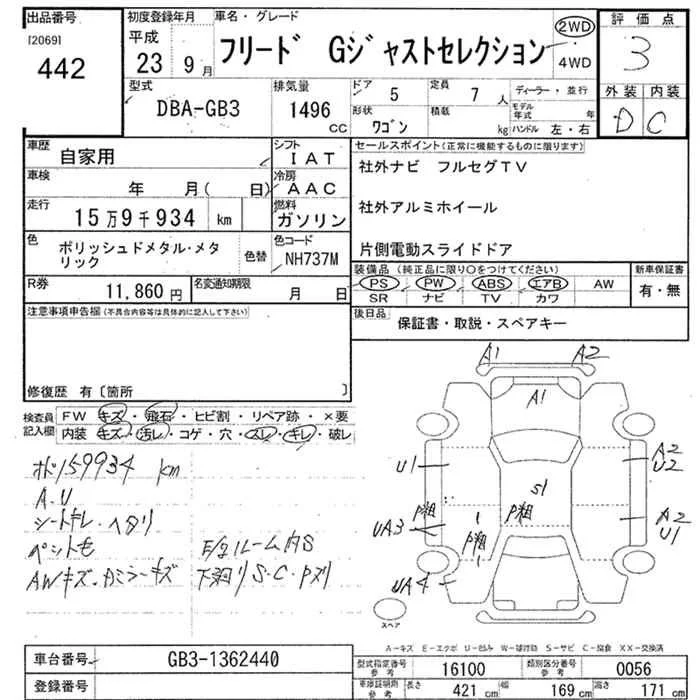 出品番号
[2069]
442
初度登録年月
平成
23 9月
車名・グレード
フリード Gジャストセレクション
2WD
4WD
評価点
3
外装 内装
D C
型式
DBA-GB3
排気量
1496
cc
ドア 5
形状 ワゴン
定員 7 人
積載 kg
ディーラー・並行
モデル年式 年
ハンドル 左・右
車歴 自家用
シフト
IAT
車検 年 月( 日)
冷房
AAC
走行 15万9千934 km
燃料
ガソリン
色
ポリッシュドメタル・メタリック
色替
色コード
NH737M
R券 11,860 円
名変通知期限 月 日
セールスポイント(正常に機能するものに限ります)
社外ナビ フルセグTV
社外アルミホイール
片側電動スライドドア
装備品 (純正品に限り○をつけてください)
PS PW ABS エアB AW
SR ナビ TV カワ
新車保証書
有・無
後日品
保証書・取説・スペアキー
注意事項申告欄(不具合内容等は具体的に記入して下さい)
修復歴 有〔箇所 〕
検査員記入欄
FW キズ・飛石・ヒビ割・リペア跡・×要
内装 キズ・汚レ・コゲ・穴・スレ・キレ・破レ
159934 km
A.U
シートキレ・ヘタリ
ペット毛
AWキズ・カミラーキズ
E/gルーム内S
下廻りS・C・P刈
A1 A2
A1
U1
A2
U2
S1
P粗
P粗
P粗
UA3
A2
U1
UA4
スペア
A-キズ E-エクボ U-凹み W-波打数 S-サビ C-腐食 XX-交換済
車台番号 GB3-1362440
登録番号
型式指定番号
参考
16100
類別区分番号
参考
0056
車庫証明用
参考
長さ 421 cm
幅 169 cm
高さ 171 cm